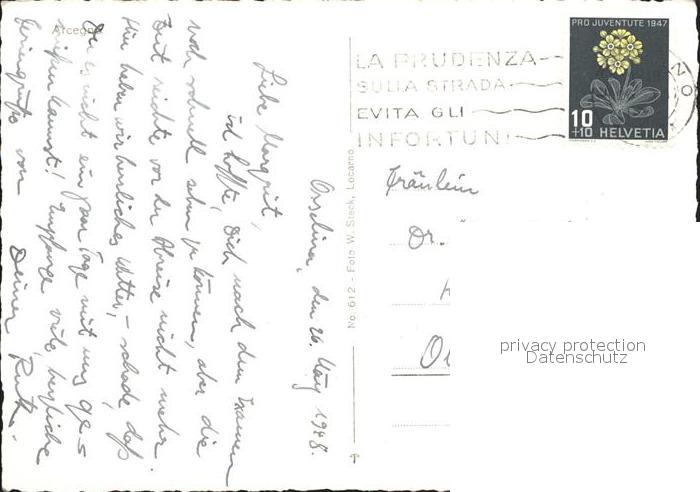 Arcegno
Orselina, den 26. März 1948.
Liebe Margrit,
ich hoffte, Dich nach dem Examen
noch schnell sehen zu können, aber die
Zeit reichte vor der Abreise nicht mehr.
Hier haben wir herrliches Wetter, – schade, daß
Du es nicht ein paar Tage mit uns ge-
niessen kannst! Empfange viele herzliche
von Deiner Ruth.
No. 612 - Foto W. Steck, Locarno
LA PRUDENZA
SULLA STRADA
EVITA GLI
INFORTUNI
PRO JUVENTUTE 1947
10
+10 HELVETIA
Fräulein
Dr.
privacy protection
Datenschutz